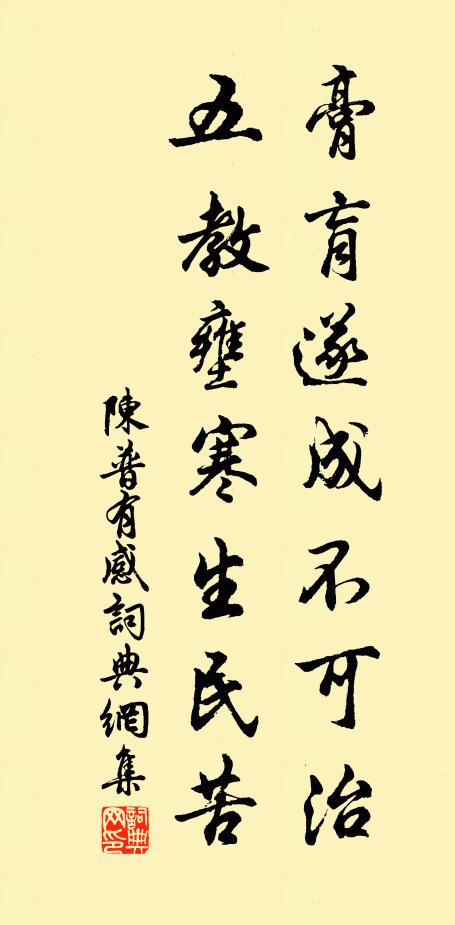 膏肓遂成不可治
五教壅寒生民苦
陳普有感詞典網集
詞典網印